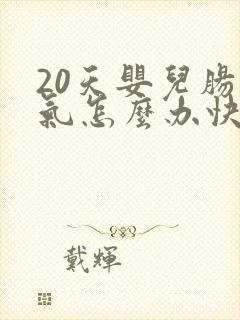 20天嬰兒腸
氣怎麼办快
戴輝